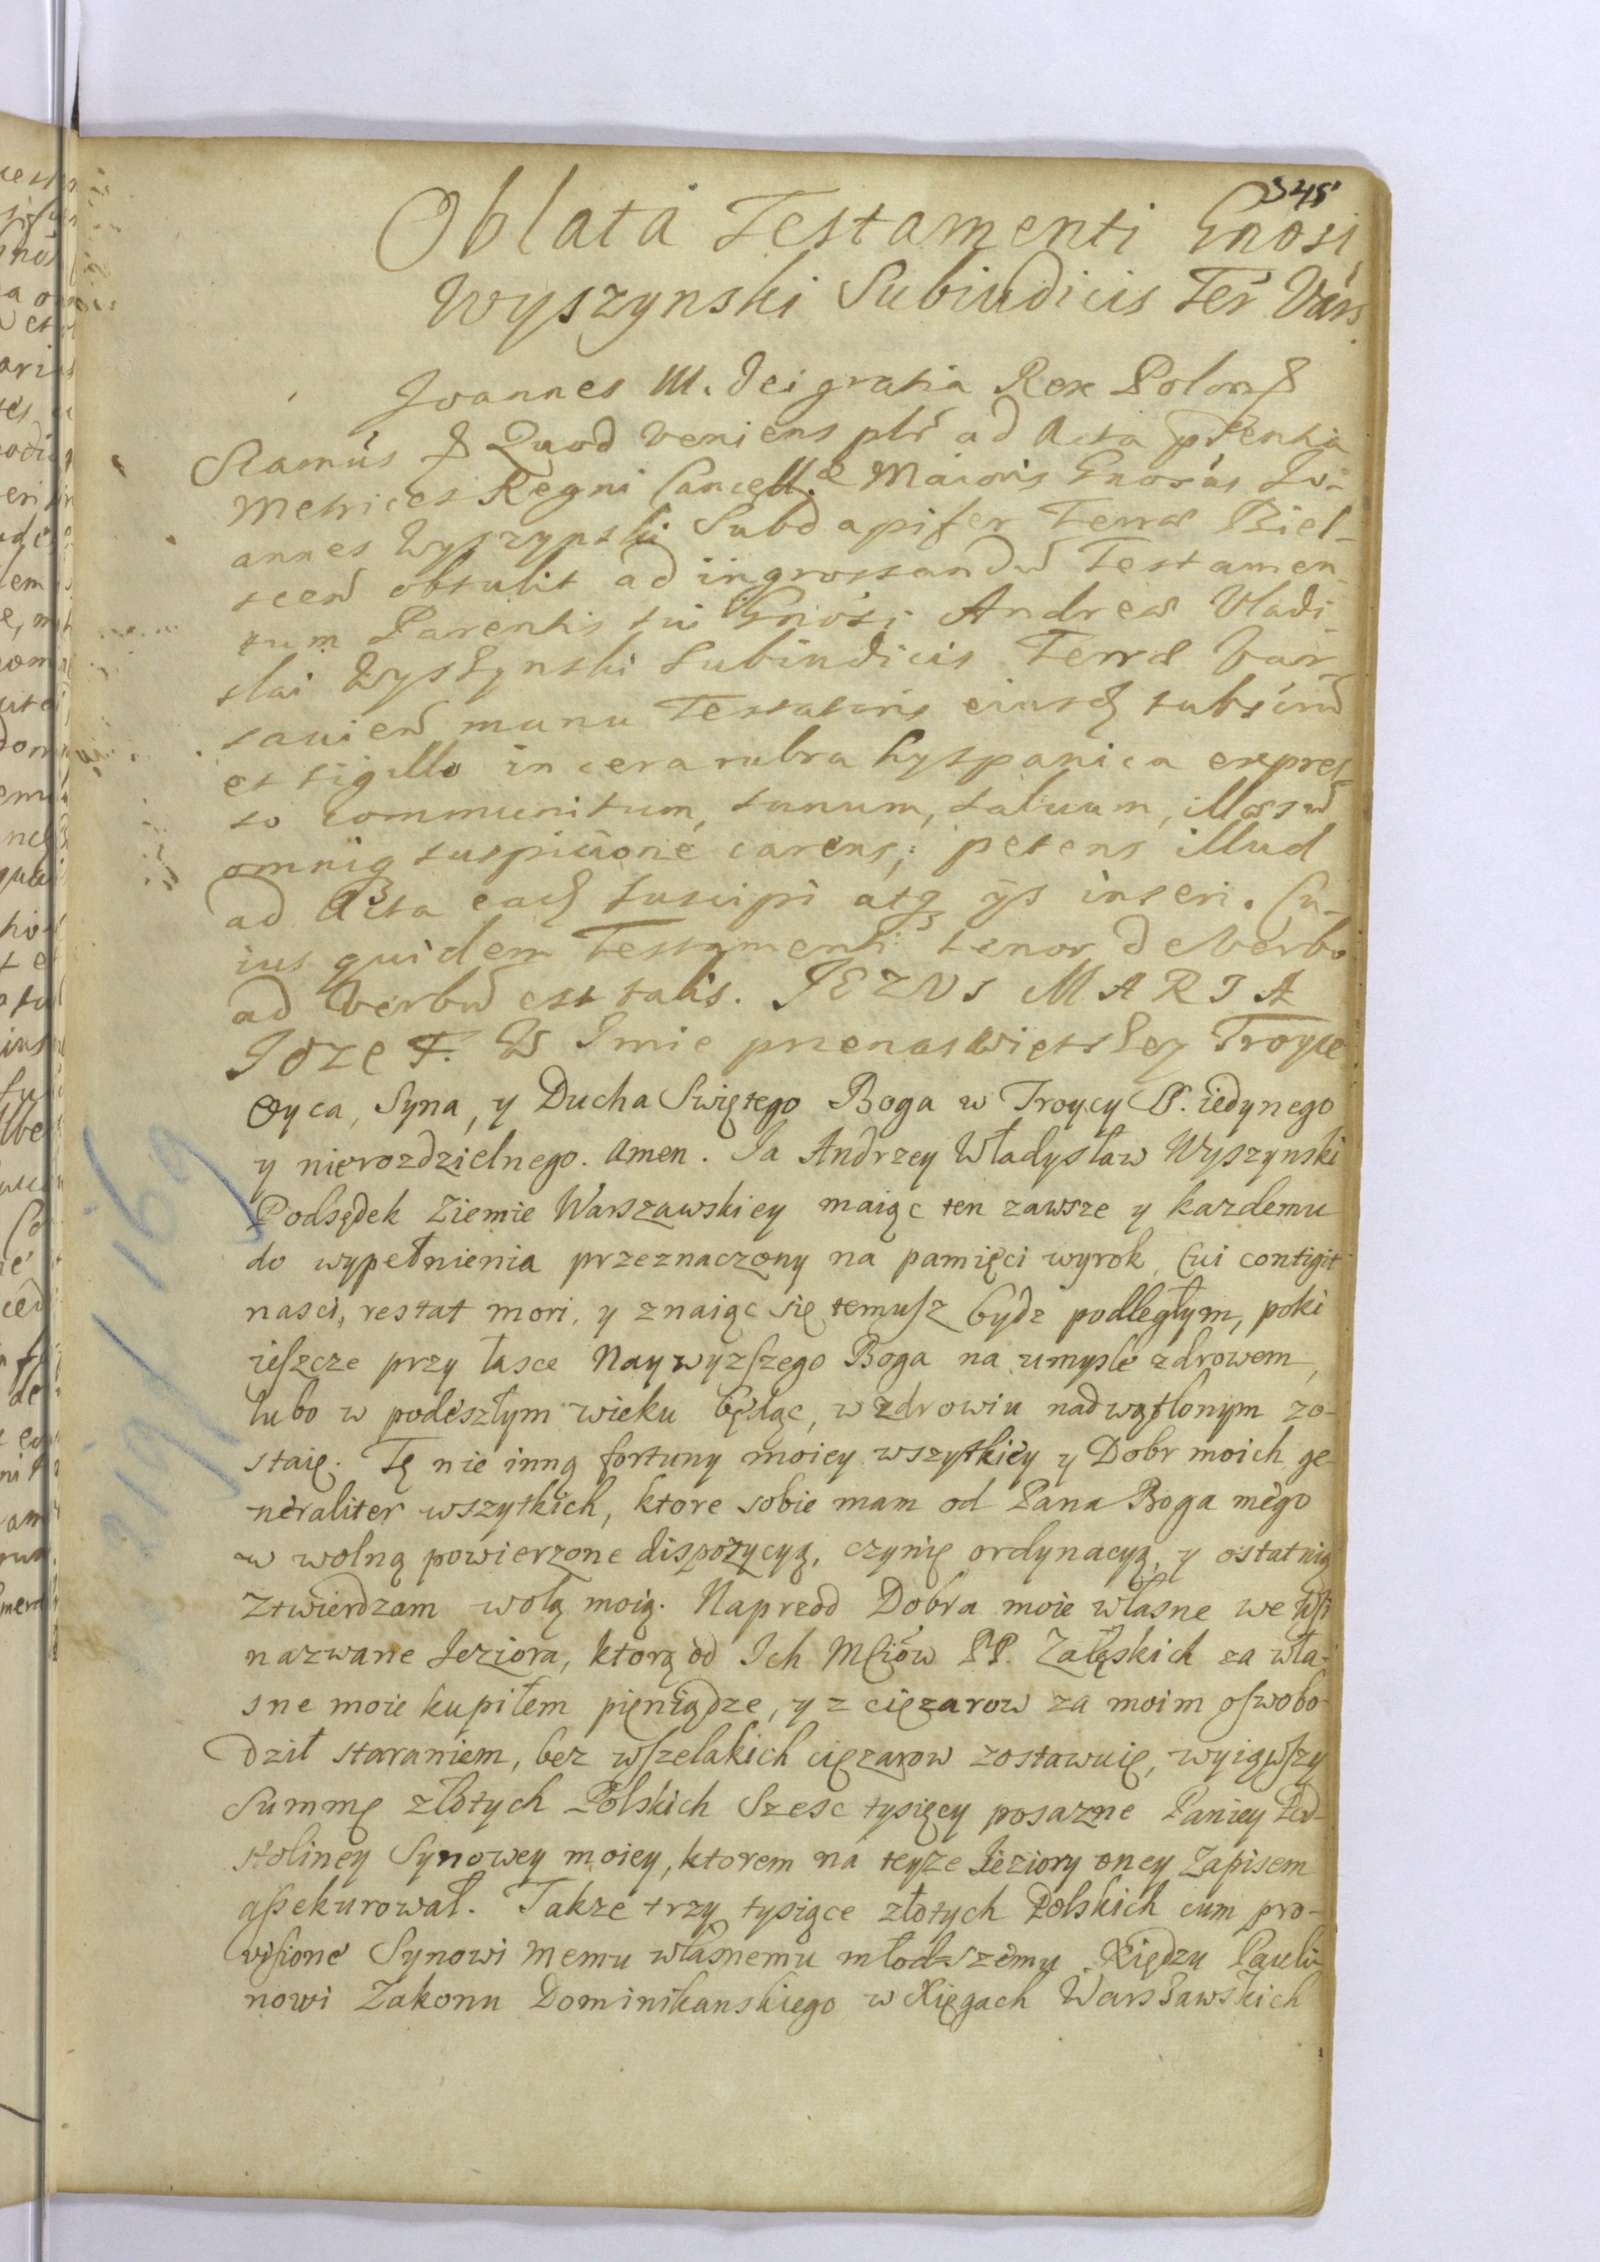 345
Oblata Testamenti Gnosi
Wyszynski Subiudicis Ter Vars
Joannes III. Dei gratia Rex Polon
Quod veniens plr ad Acta pñtia
Metrices Regni Cancell. Maioris Gnosus Jo-
annes Wyszynski Subdapifer Terrae Biel-
scen obtulit ad ingrossandu Testamen-
tum Parentis sui Gnosi Andreae Vladi-
slai Wyszynski Subiudicis Terrae Var-
sauien manu Testatoris eiusq subscru
et sigillo in cera rubra hyspanica expres-
so communitum, sanum, saluum, illaesu
omniq suspicione carens; petens illud
ad Acta eaq suscipi atq ijs inseri. Cu-
ius quidem Testamenti tenor de verbo
ad verbu est talis. JEZUS MARIA
JOZEF. W Imie przenaswiętszey Troyce
Oyca, Syna, y Ducha Swiętego Boga w Troycy S. iedynego
y nierozdzielnego. Amen. Ja Andrzey Władysław Wyszynski
Podsędek Ziemie Warszawskiey maiąc ten zawsze y kazdemu
do wypełnienia przeznaczony na pamięci wyrok, Cui contigit
nasci, restat mori, y znaiąc się temusz bydz podległym, poki
ieszcze przy łasce Naywyzszego Boga na umysle zdrowem,
lubo w podeszłym wieku będąc, w zdrowiu nadwątlonym zo-
staię. Tę nie inną fortuny moiey wszytkiey y Dobr moich ge-
neraliter wszytkich, ktore sobie mam od Pana Boga mego
w wolną powierzone dispozycyą, czynię ordynacyą, y ostatnią
ztwierdzam wolą moią. Naprzod Dobra moie własne we wsi
nazwane Jeziora, ktorą od Ich Mściow PP. Załęskich za wła-
sne moie kupiłem pieniądze, y z cięzarow za moim oswobo-
dził staraniem, bez wszelakich cięzarow zostawuię, wyiąwszy
Summę złotych Polskich Szesc tysięcy posazne Paniey Pod-
stoliney Synowey moiey, ktorem na teyze Jeziory oney Zapisem
assekurował. Takze trzy tysiące złotych Polskich cum pro-
visione Synowi memu własnemu młodszemu Xiędzu Pauli-
nowi Zakonu Dominikanskiego w Xięgach Warszawskich